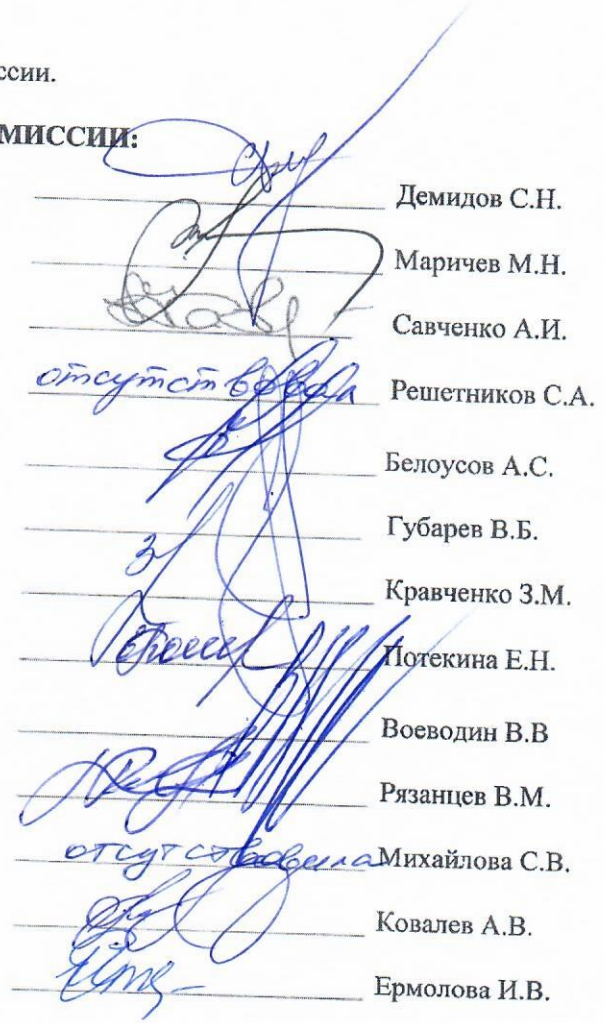 ссии.
МИССИИ:
Демидов С.Н.
Маричев М.Н.
Савченко А.И.
отсутствовал Решетников С.А.
Белоусов А.С.
Губарев В.Б.
Кравченко З.М.
Потекина Е.Н.
Воеводин В.В
Рязанцев В.М.
отсутствовала Михайлова С.В.
Ковалев А.В.
Ермолова И.В.